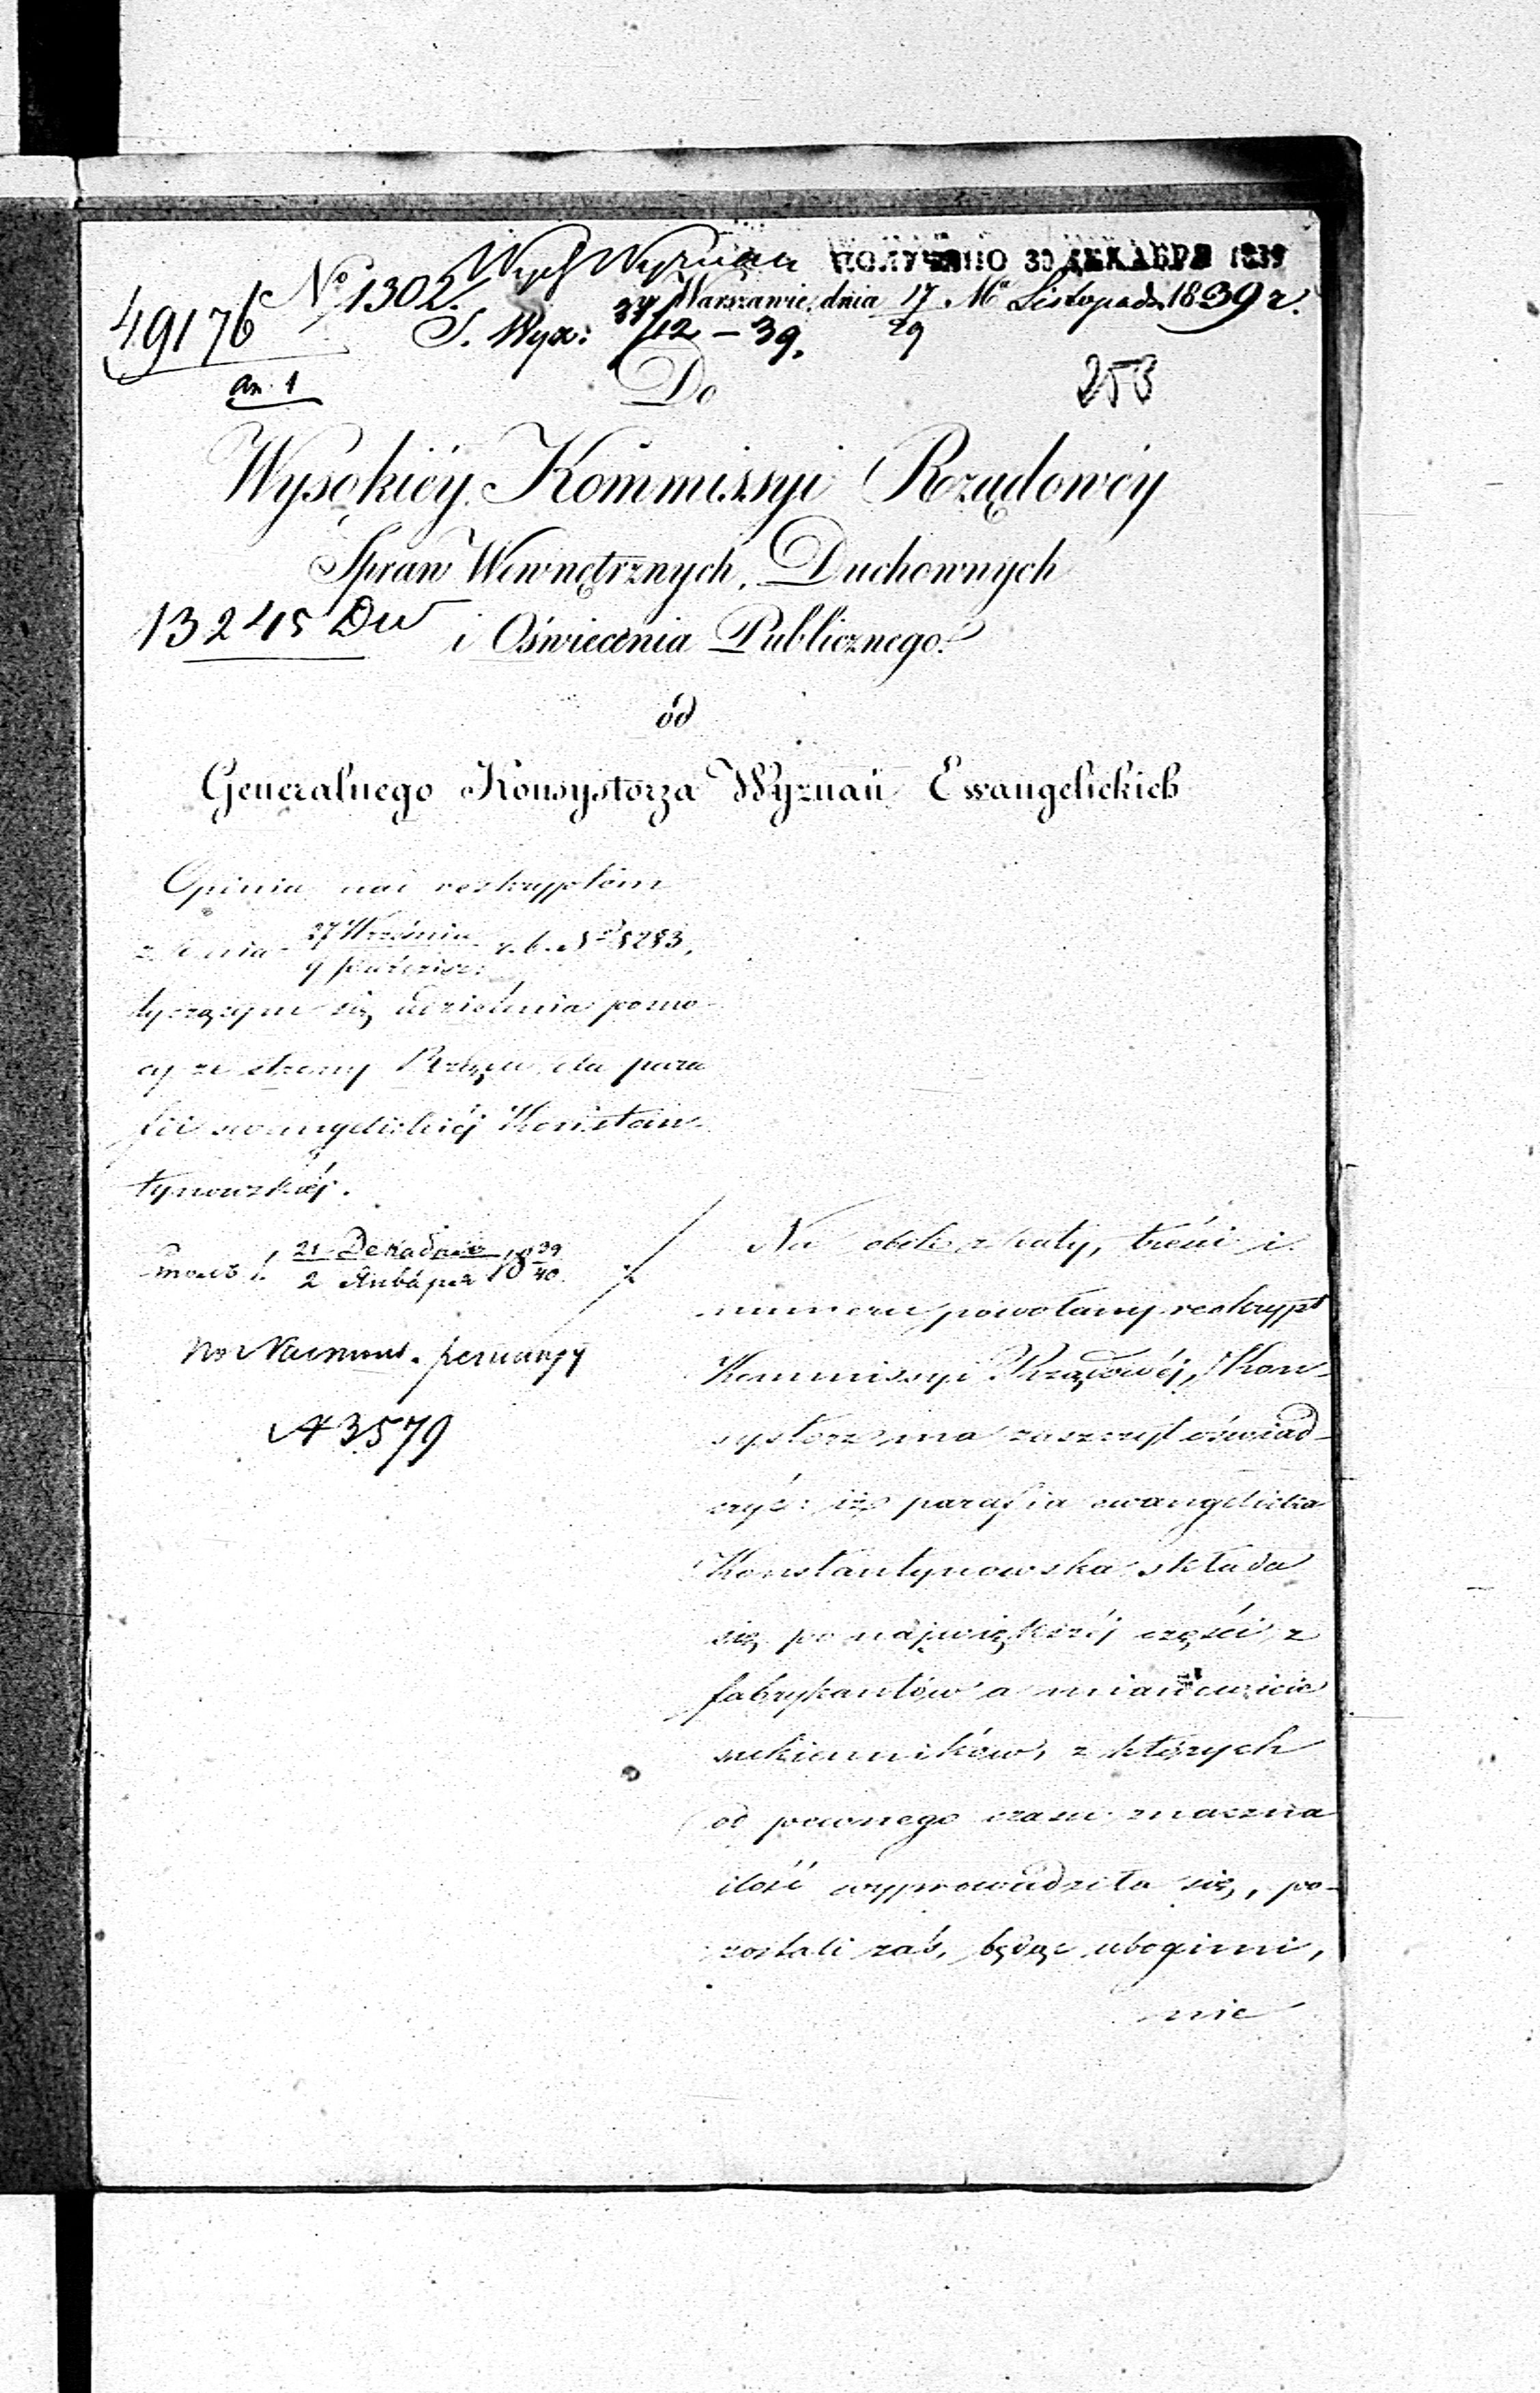 Wydz Wyznań ПОЛУЧЕНО 30 ДЕКАБРЯ 1839
49176 № 1302. w Warszawie, dnia 17/29 Ma Listopada 1839 r.
S. Wyz: /12 – 39.
an. 1
Do
253
Wysokiéy Kommissyi Rządowéy
Spraw Wewnętrznych, Duchownych
13245 DW
i Oświecenia Publicznego.
od
Generalnego Konsystorza Wyznań Ewangelickich
Opinia nad reskryptem
z dnia 27 Września / 9 Paździer: r. b. №
tyczącym się udzielenia pomo-
cy ze strony Rządu dla para
fii ewangelickiéj Konstan-
tynowskiéj.
21 Декабря / 2 Января 18 39/40
№ 3579
Na obok z daty, treści i
numeru powołany reskrypt
Kommissyi Rządowéj, Kon-
systorz ma zaszczyt oświad-
czyć: iż parafia ewangelicka
Konstantynowska składa
się po największéj części z
fabrykantów a mianowicie
sukienników, z których
od pewnego czasu znaczna
ilość wyprowadziła się, po-
zostali zaś, będąc ubogimi,
nie